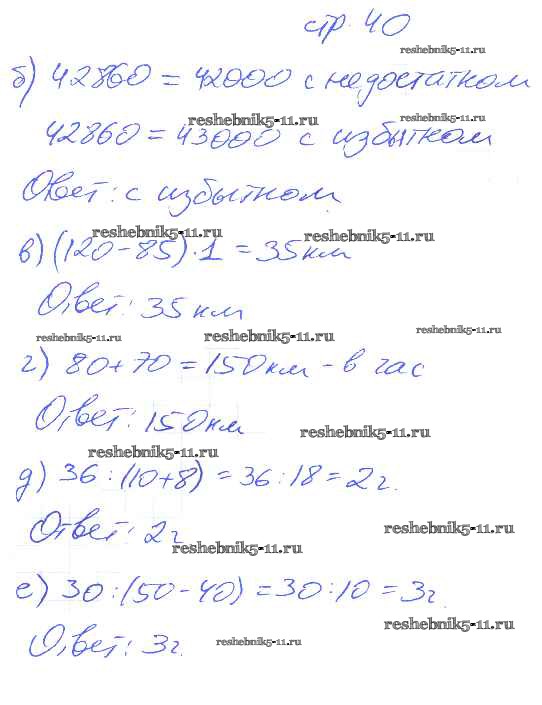 стр. 40
reshebnik5-11.ru
б) 42860 = 42000 с недостатком
reshebnik5-11.ru reshebnik5-11.ru
42860 = 43000 с избытком
Ответ: с избытком
reshebnik5-11.ru reshebnik5-11.ru
в) (120 - 85) · 1 = 35 км
Ответ: 35 км
reshebnik5-11.ru reshebnik5-11.ru reshebnik5-11.ru
г) 80 + 70 = 150 км - в час
Ответ: 150 км
reshebnik5-11.ru reshebnik5-11.ru
д) 36 : (10 + 8) = 36 : 18 = 2 г.
Ответ: 2 г
reshebnik5-11.ru reshebnik5-11.ru
е) 30 : (50 - 40) = 30 : 10 = 3 г.
reshebnik5-11.ru
Ответ: 3 г.
reshebnik5-11.ru